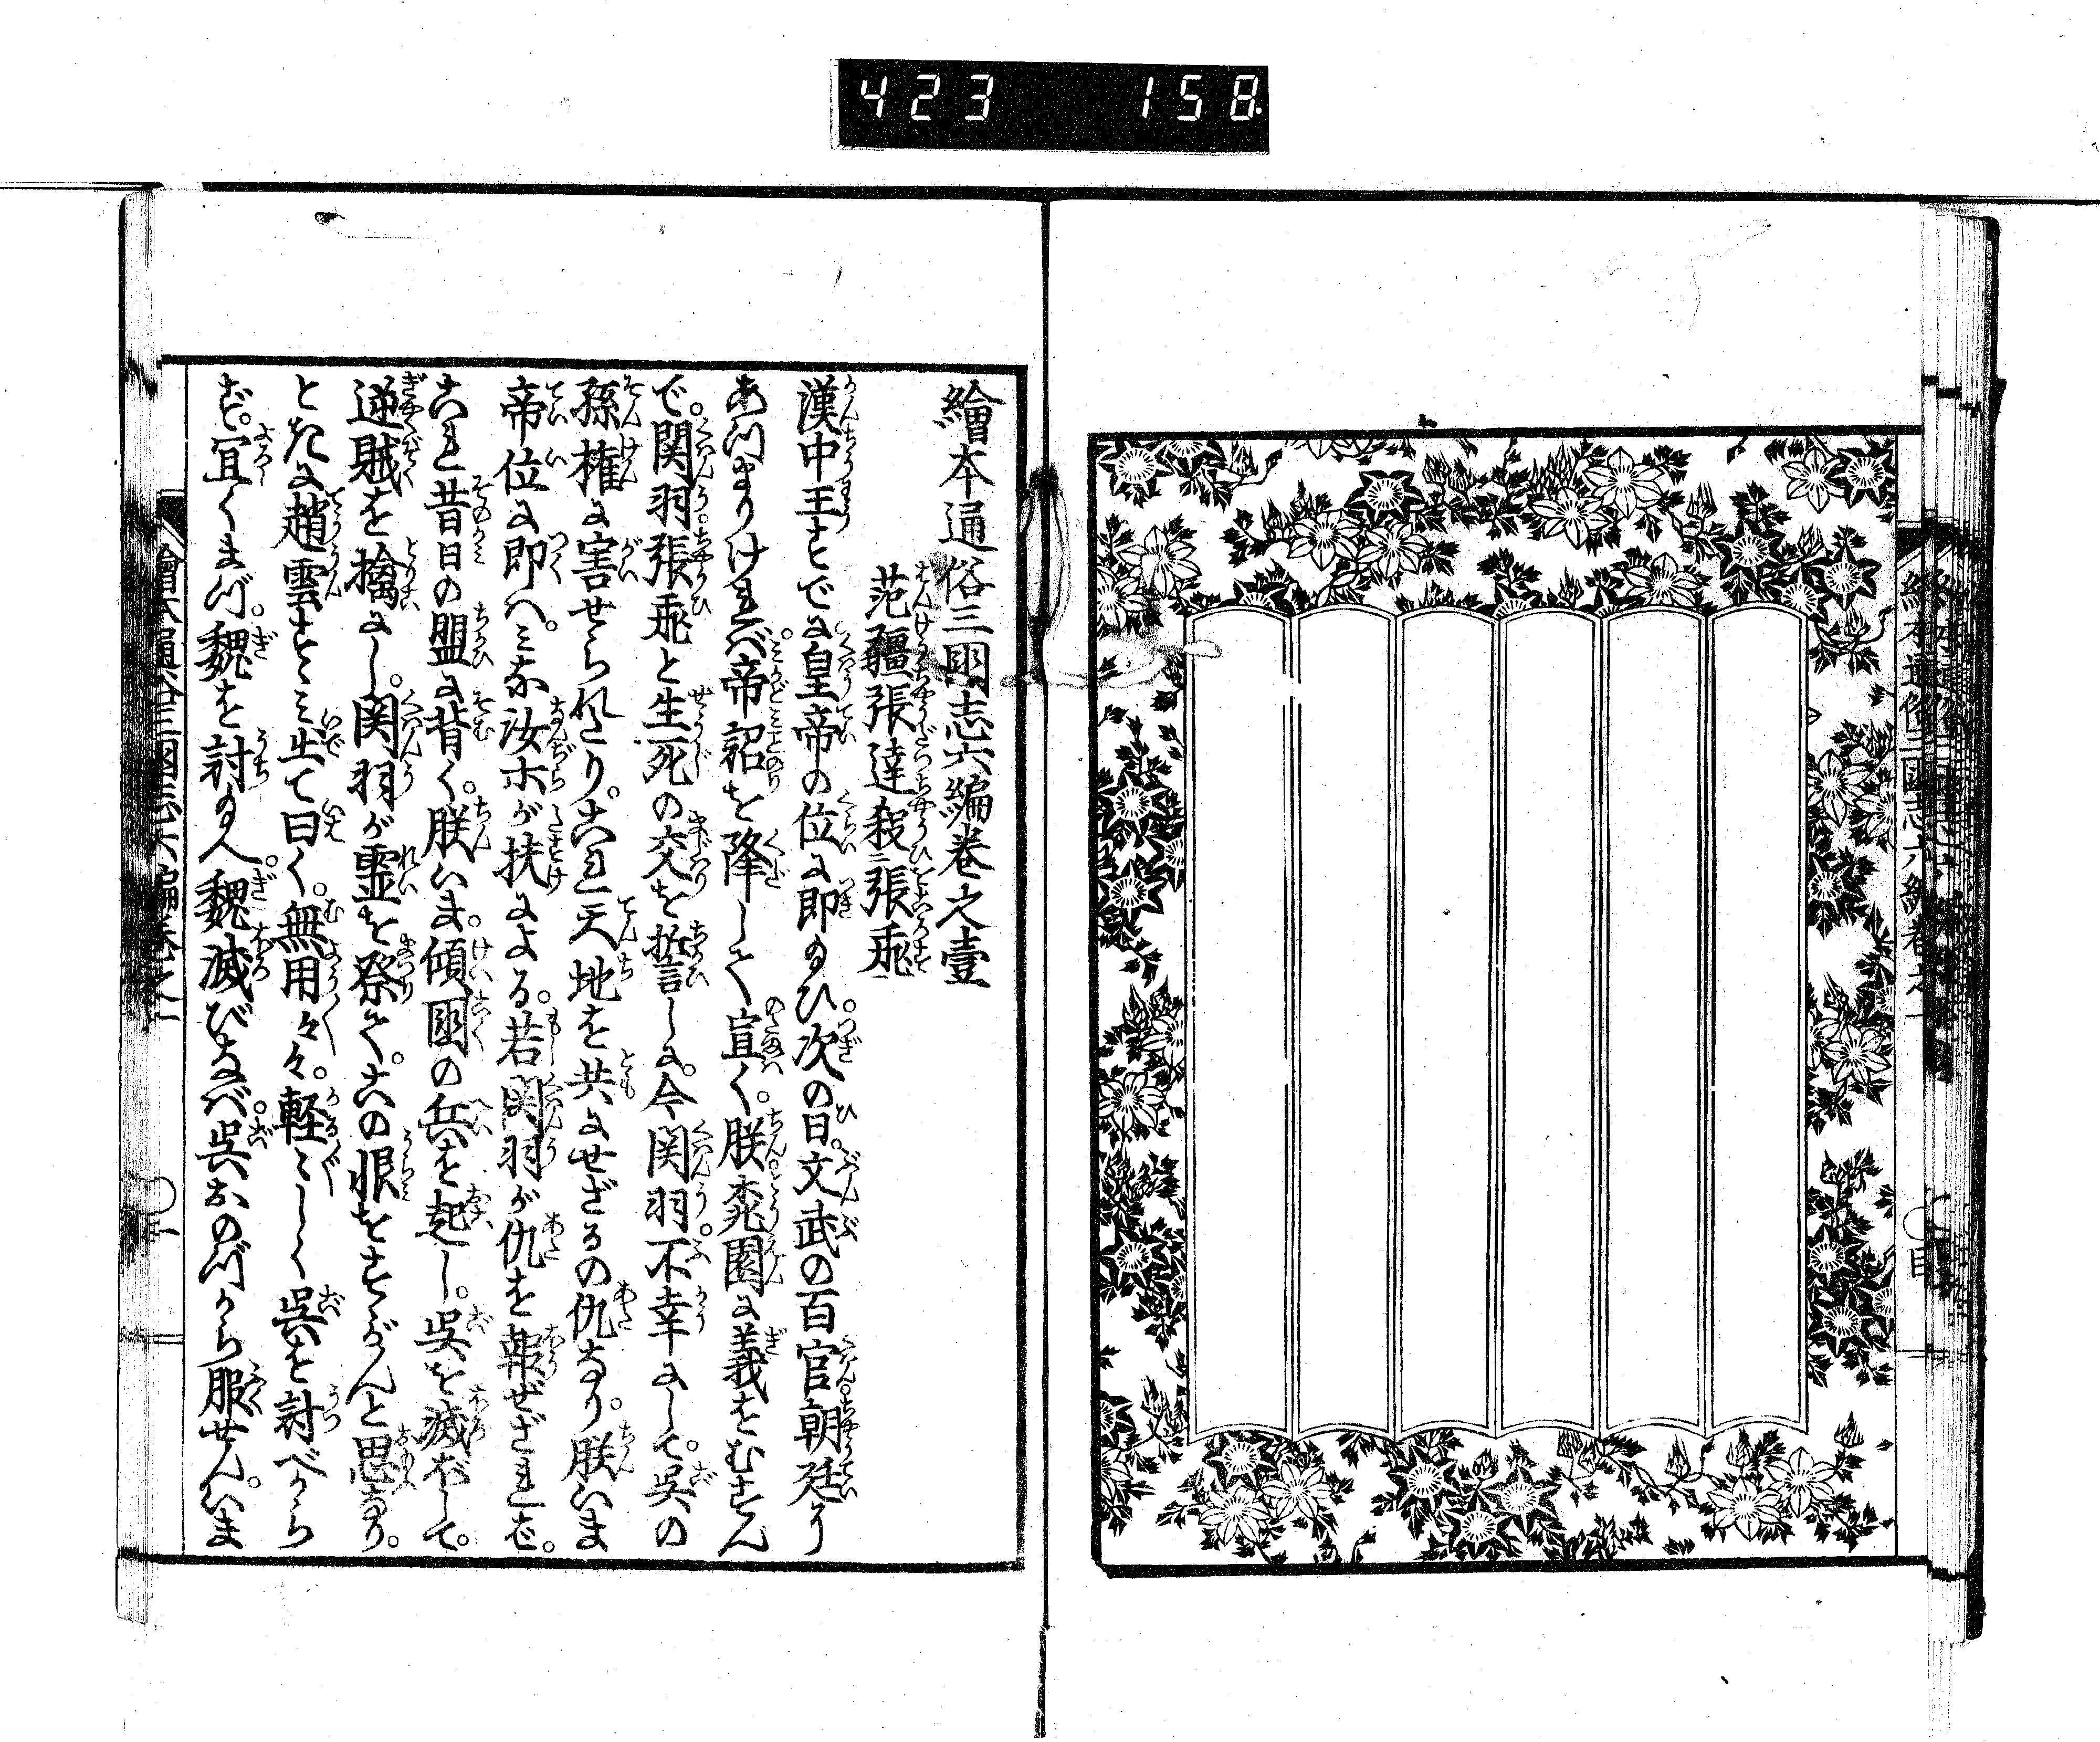 423 158
繪本通俗三國志六編卷之壹
范彊張達殺張飛
漢中王すでに皇帝の位に即給ひ。次の日。文武の百官朝廷に
あつまりければ。帝詔を降して宣く。朕。桃園に義をむすん
で。関羽。張飛と生死の交を誓しに。今関羽。不幸にして。呉の
孫権に害せられたり。これ天地を共にせざるの仇なり。朕いま
帝位に即へ。みな汝ホが扶による。若関羽が仇を報ぜざれば。
これ昔日の盟に背く。朕いま。傾國の兵を起し。呉を滅ぼして。
逆賊を擒にし。関羽が霊を祭て。この恨をすゝがんと思なり。
ときに趙雲すゝみ出て曰く。無用々々。軽〻しく呉を討べから
ず。宜くまづ。魏を討給へ。魏滅びなば。呉おのづから服せん。いま
繪本通俗三國志六編卷之一